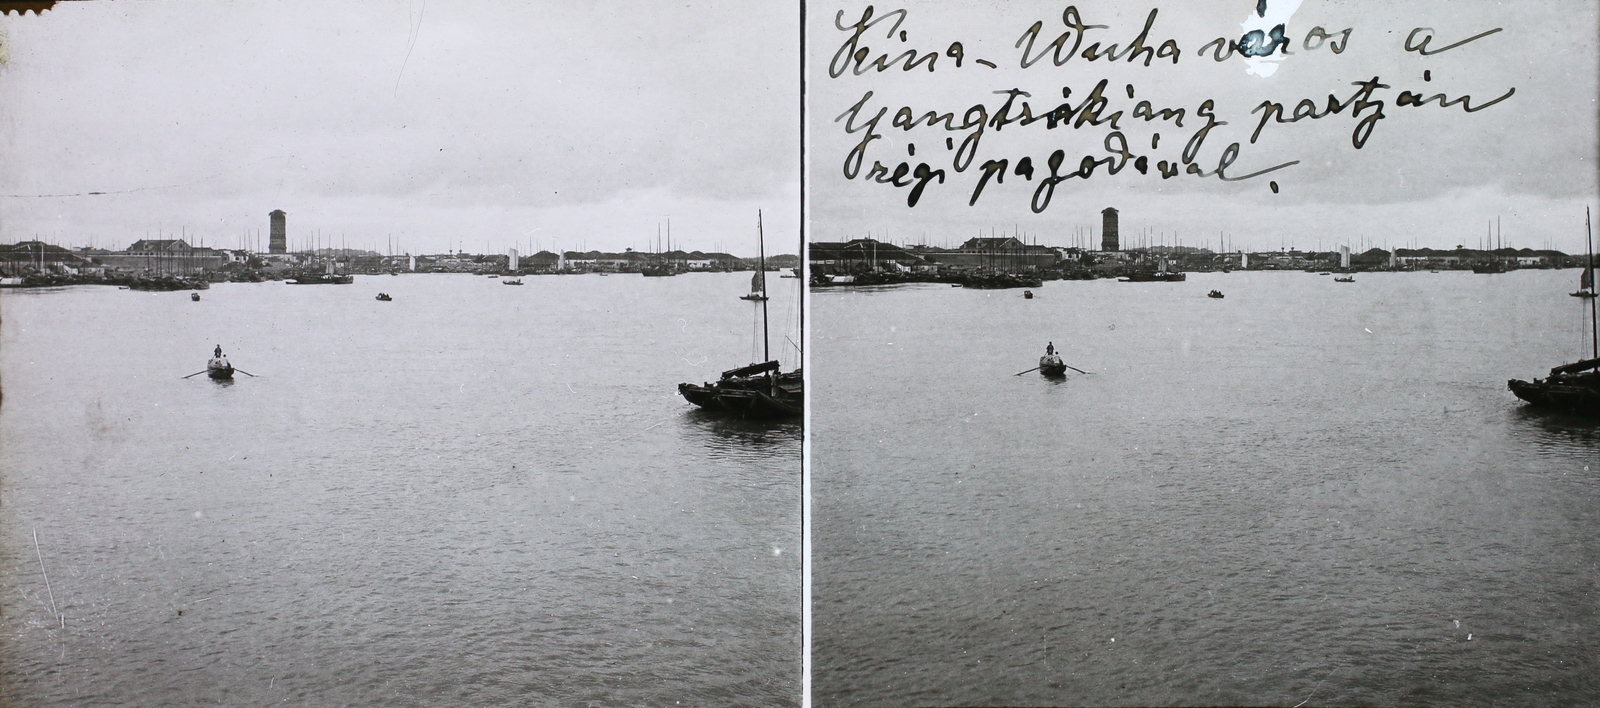 Kina - Wuha város a
Yangtsekiang partján
régi pagodával.